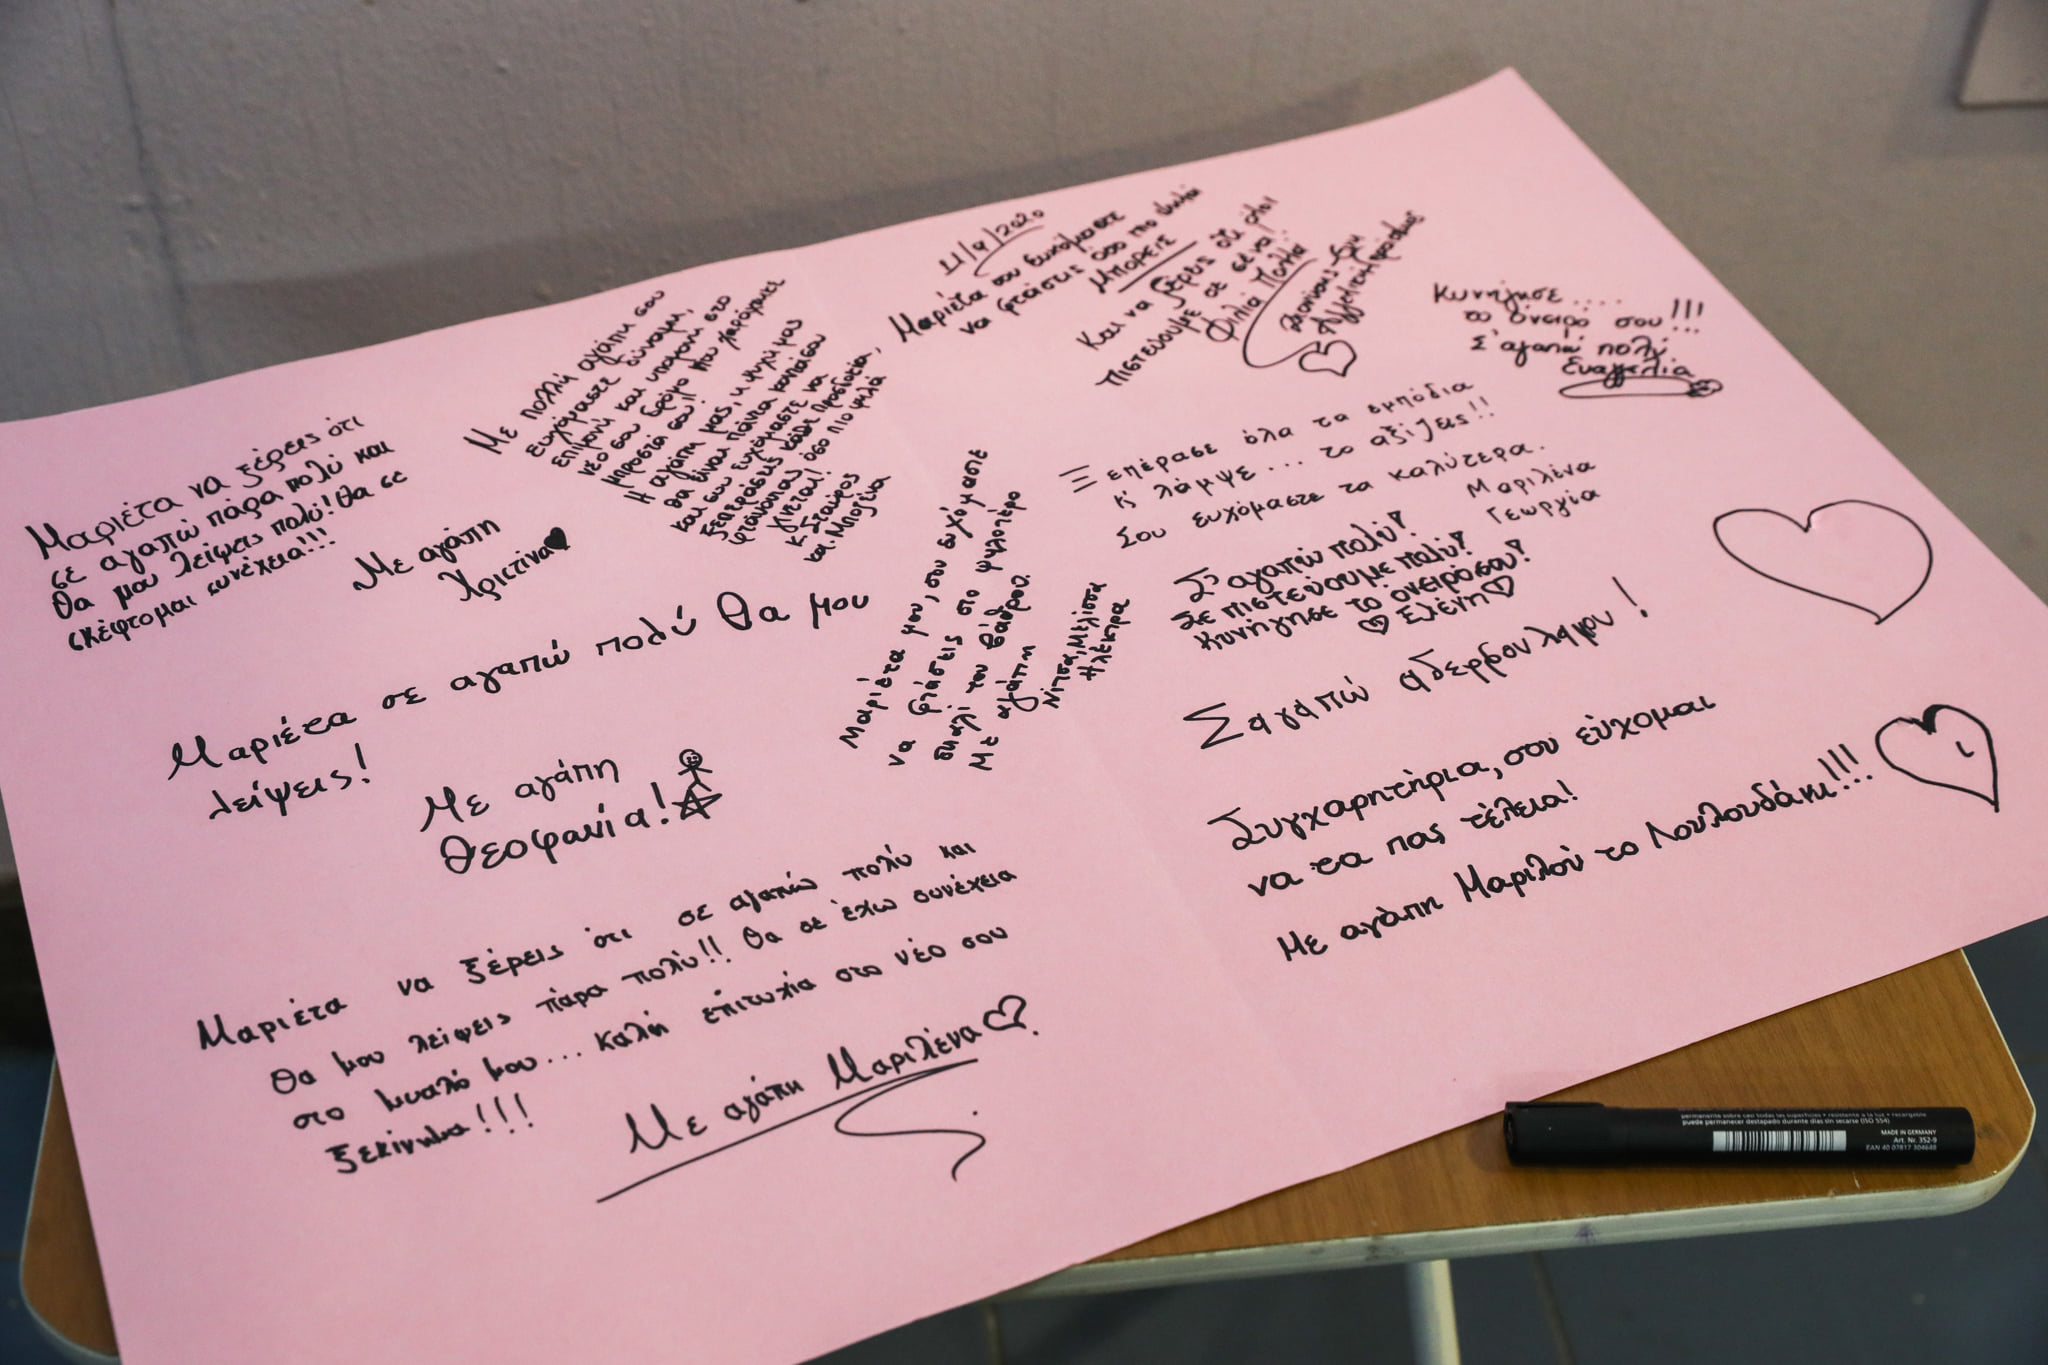 Μαριέτα να ξέρεις ότι
σε αγαπώ πάρα πολύ και
θα μου λείψεις πολύ! θα σε
σκέφτομαι συνέχεια!!!
Με αγάπη
Χριστίνα
Με πολλή αγάπη σου
ευχόμαστε δύναμη,
επιμονή και υπομονή στο
νέο σου δρόμο που χαράχτηκε
μπροστά σου!!
Η αγάπη μας, κ ψυχή μας
θα είναι πάντα κοντά σου
και σου ευχόμαστε να
ξεπεράσεις κάθε προσδοκία,
φτάνοντας όσο πιο ψηλά
γίνεται!
κ. Σταύρος
και Μποζένα
11/9/2020
Μαριέτα σου ευχόμαστε
να φτάσεις όσο πιο ψηλά
ΜΠΟΡΕΙΣ
Και να ξέρεις ότι όλοι
πιστεύουμε σε σένα!
Φιλιά Πολλά
Κυνήγησε....
το όνειρό σου!!!
Σ'αγαπώ πολύ
Ευαγγελία
Ξεπέρασε όλα τα εμπόδια
κ' λάμψε... το αξίζεις!!
Σου ευχόμαστε τα καλύτερα.
Μαριλένα
Γεωργία
Σ'αγαπώ πολύ!
Σε πιστεύουμε πολύ!
Κυνήγησε το όνειρό σου!
Ελένη
Μαριέτα μου, σου ευχόμαστε
να φτάσεις στο ψηλότερο
σκαλί του βάθρου!
Με αγάπη
Νίτσα, Μελίσσα
Ηλέκτρα
Μαριέτα σε αγαπώ πολύ θα μου
λείψεις!
Με αγάπη
Θεοφανία!
Σαγαπώ αδερφουλαμου!
Συγχαρητήρια, σου εύχομαι
να τα πας τέλεια!
Με αγάπη Μαριλού το Λουλουδάκι!!!
Μαριέτα να ξέρεις ότι σε αγαπώ πολύ και
θα μου λείψεις πάρα πολύ!! Θα σε έχω συνέχεια
στο μυαλό μου... Καλή επιτυχία στο νέο σου
ξεκίνημα!!!
Με αγάπη Μαριλένα
permanente sobre casi todas las superficies • resistente a la luz • recargable
puede permanecer destapado durante días sin secarse (ISO 554)
MADE IN GERMANY
Art. Nr. 352-9
EAN 40 07817 304648